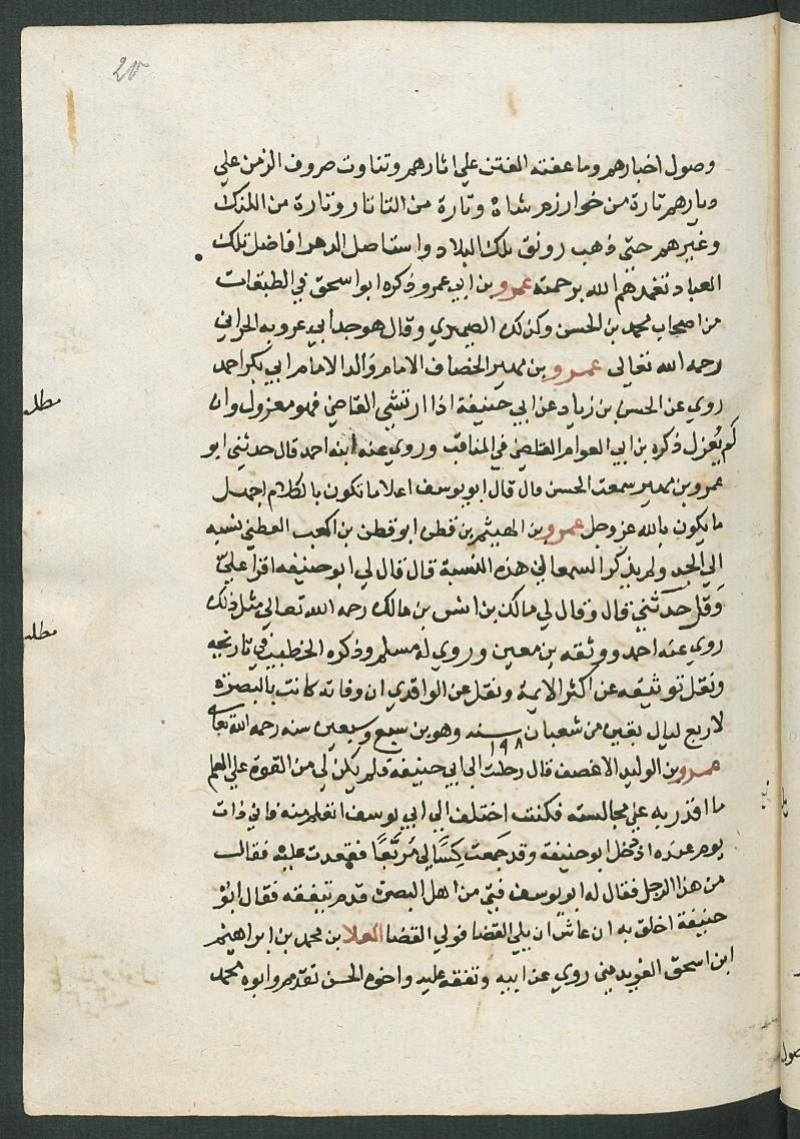 20
وصول اخبارهم وما عفته الفتن علي اثارهم وتناوت صروف الزمن علي
ديارهم تارة من خوارزم شاه وتارة من التاتار وتارة من اللنك
وغيرهم حتي ذهب رونق تلك البلاد واستاصل الدهر افاضل تلك
العباد تغمدهم الله برحمته عمرو بن ابي عمرو ذكره ابو اسحق في الطبقات
من اصحاب محمد بن الحسن وكذلك الصيمري وقال هو جد أبي عروبه الحراني
رحمه الله تعالى عمرو بن مهير الخصاف الامام والد الامام ابي بكر احمد
روي عن الحسن بن زياد عن ابي حنيفة اذا ارتشي القاضي فهو معزول وان
لم يُعزل ذكره بن ابي العوام القاضي في المناقب وروي عنه ابنه احمد قال حدثني ابو
عمرو بن مهير سمعت الحسن قال قال ابو يوسف اعلا ما تكون بالكلام اجهل
ما يكون بالله عز وجل عمرو بن الهيثم بن قطن ابو قطن بن اكعب القطني نسبه
الي الجد ولم يذكر السمعاني هذه النسبة قال قال لي ابو حنيفه اقرا عليّ
وَقل حدّثني قال وقال لي مالك بن انس بن مالك رحمه الله تعالي مثل ذلك
روي عنه احمد ووثقه بن معين وروي له مسلم وذكره الخطيب في تاريخه
ونقل توثيقه عن اكثر الايمة ونقل عن الواقدي ان وفاته كانت بالبصرة
لاربع ليال بقين من شعبان سنه ١٩٨ وهو بن سبع وسبعين سنه رحمه الله تعالي
عمرو بن الوليد الاغضف قال رحلت الي ابي حنيفة فلم يكن لي من القوة علي العلم
ما اقدر به علي مجالسته فكنت اختلف الي ابي يوسف اتعلم منه فاني ذات
يوم عنده اذ دخل ابو حنيفة وقد جَمعت كِسًا لي مُربّعًا فقعدت عليه فقال
من هذا الرجل فقال له ابو يوسف فتي من اهل البصرة قدم يتفقه فقال ابو
حنيفة اخلق به ان عاش ان يلي القضا فولي القضا العلا بن محمد بن ابراهيم
ابن اسحق الغويديني روي عن ابيه وتفقه عليه واخوه الحسن تقدم وابوه محمد
مطلب
مطلب